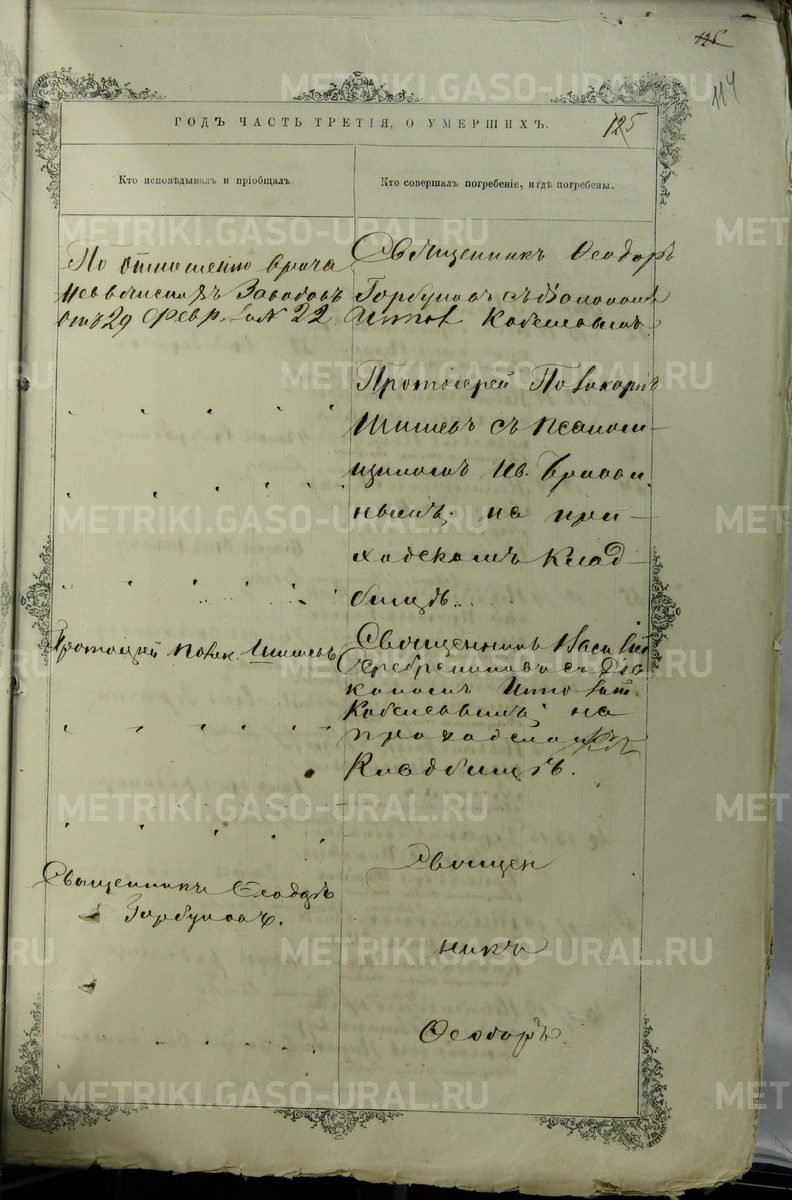 126
114
ГОДЪ ЧАСТЬ ТРЕТІЯ, О УМЕРШИХЪ.
125
Кто исповѣдывалъ и пріобщалъ.
Кто совершалъ погребеніе, и гдѣ погребены.
По отношенію врача
Заводовъ
отъ 29 Февр. за № 22
Священникъ Ѳеодоръ
Горбуновъ съ
Протоіерей Поликарпъ
Шишевъ съ псалом-
щикомъ Ив.
на при-
ходскомъ клад-
бищѣ.
Протоіерей Полик. Шишевъ
Священникъ Василій
Серебрениковъ съ Діа
кономъ
на
приходскомъ
Кладбищѣ.
Священникъ Ѳеодоръ
Горбуновъ.
Священ
никъ
Ѳеодоръ
METRIKI.GASO-URAL.RU